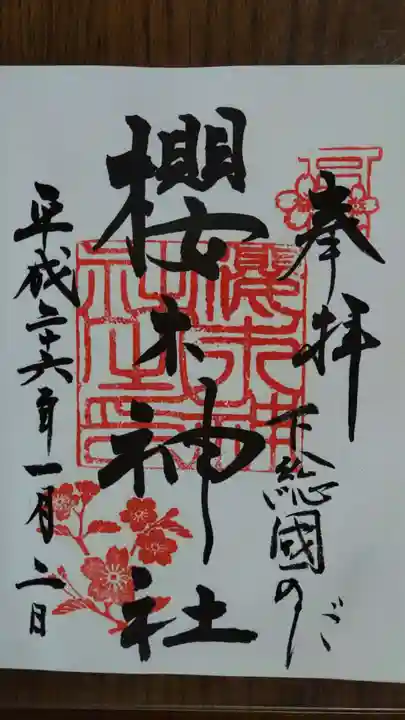 奉拝
下総國のだ
櫻木神社
平成二十六年一月二日